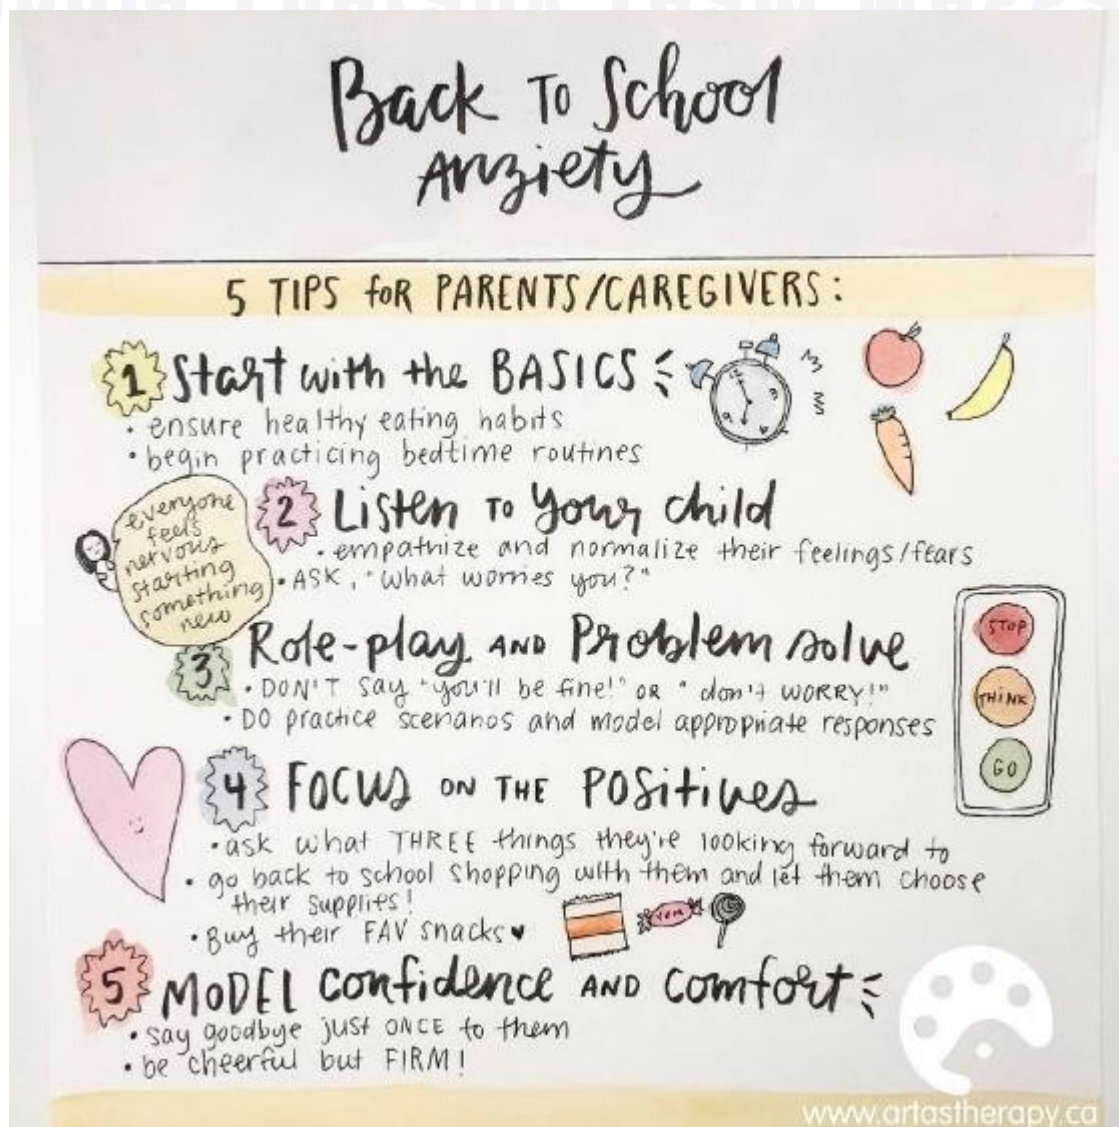 Back To School
Anxiety
5 TIPS for PARENTS/CAREGIVERS:
1 Start with the BASICS
• ensure healthy eating habits
• begin practicing bedtime routines
everyone
feels
nervous
starting
something
new
2 Listen to Your child
• empathize and normalize their feelings/fears
• ASK, "what worries you?"
3 Role-play AND Problem solve
• DON'T say "you'll be fine!" OR "don't WORRY!"
• DO practice scenarios and model appropriate responses
STOP
THINK
GO
4 FOCUS ON THE POSitives
• ask what THREE things they're looking forward to
• go back to school shopping with them and let them choose
their supplies!
• Buy their FAV snacks ♥
YUM
5 MODEL confidence AND comfort
• say goodbye just ONCE to them
• be cheerful but FIRM!
www.artastherapy.ca